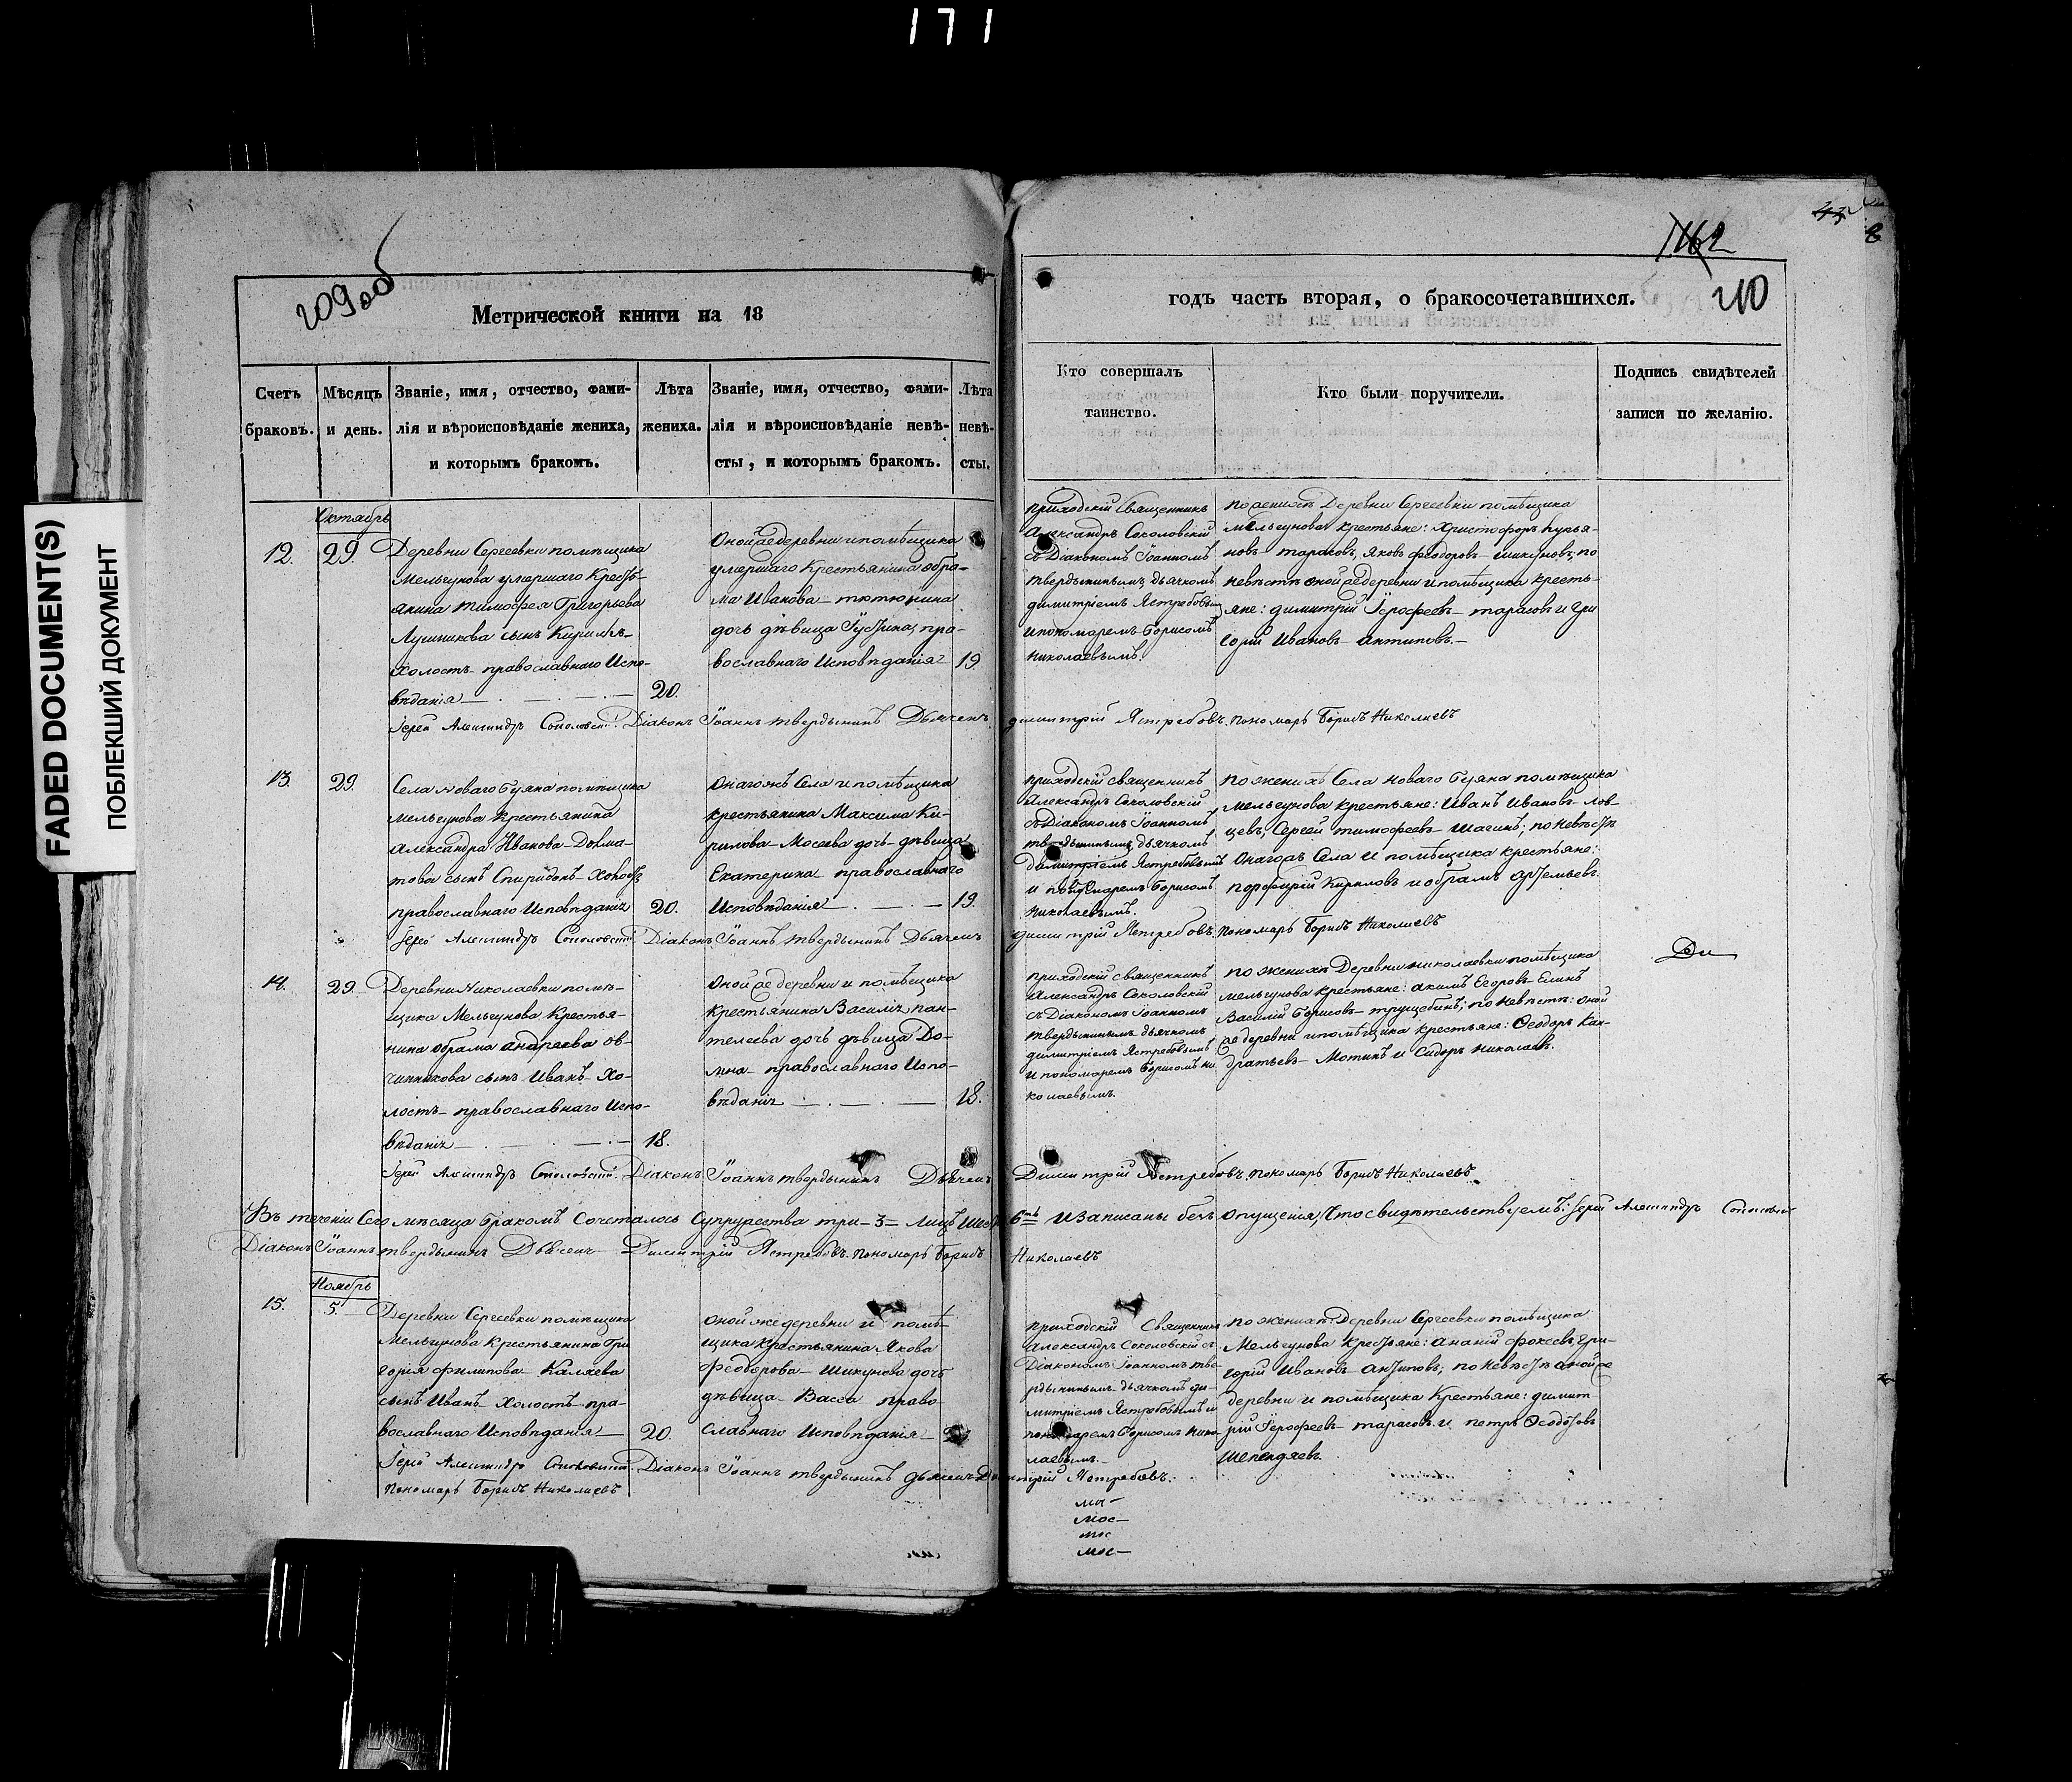 171
FADED DOCUMENT(S)
ПОБЛЕКШИЙ ДОКУМЕНТ
209 об
Метрической книги на 18
Счетъ браковъ.
Мѣсяцъ и день.
Званіе, имя, отчество, фами-
лія и вѣроисповѣданіе жениха,
и которымъ бракомъ.
Лѣта
жениха.
Званіе, имя, отчество, фами-
лія и вѣроисповѣданіе невѣ-
сты, и которымъ бракомъ.
Лѣта
невѣ-
сты.
Октябрь
12.
29.
Деревни Сергеевки помѣщика
Мельгунова умершаго Кресть-
янина Тимофея Григорьева
Лушникова сынъ Кирилъ-
Холостъ православнаго Испо-
вѣданія
20.
Оной же деревни и помѣщика
умершаго Крестьянина Обра-
ма Иванова тютюнина
дочь дѣвица Густина, пра-
вославнаго Исповѣданія
19.
Іерей Александръ Соколовскій Діаконъ Іоаннъ твердынинъ Дьячекъ
13.
29.
Села Новаго буяна помѣщика
Мельгунова Крестьянина
Александра Иванова Долма-
това сынъ Спиридонъ Холостъ
православнаго Исповѣданія
20.
Онагожъ Села и помѣщика
крестьянина Максима Ки-
рилова Мосеева дочь дѣвица
Екатерина православнаго
Исповѣданія
19.
Іерей Александръ Соколовскій Діаконъ Іоаннъ твердынинъ Дьячекъ
14.
29.
Деревни Николаевки помѣ-
щика Мельгунова Крестья-
нина Обрама андреева ов-
чинникова сынъ Иванъ Хо-
лостъ православнаго Испо-
вѣданія
18.
Оной же деревни и помѣщика
крестьянина Василія пан-
телеева дочь дѣвица До-
мна православнаго Испо-
вѣданія
18.
Іерей Александръ Соколовскій Діаконъ Іоаннъ твердынинъ Дьячекъ
Въ теченіи Сего мѣсяца бракомъ Сочеталось Супружества три 3 лицъ шесть
Діаконъ Іоаннъ твердынинъ Дьячекъ Димитрій Ястребовъ. пономарь Борисъ
Ноябрь
15.
5.
Деревни Сергеевки помѣщика
Мельгунова крестьянина Гри-
горія филипова Каляева
сынъ Иванъ Холостъ пра-
вославнаго Исповѣданія
20.
оной же деревни и помѣ-
щика крестьянина Якова
Феодорова Шикунова дочь
дѣвица Васса право
славнаго Исповѣданія
Іерей Александръ Соколовскій Діаконъ Іоаннъ твердынинъ дьячекъ
пономарь Борисъ Николаевъ
162
210
годъ часть вторая, о бракосочетавшихся.
Кто совершалъ
таинство.
Кто были поручители.
Подпись свидѣтелей
записи по желанію.
приходскій Священникъ
Александръ Соколовскій
съ Діакономъ Іоанномъ
твердынинымъ дьячкомъ
димитріемъ Ястребовымъ
и пономаремъ Борисомъ
Николаевымъ.
по женихѣ Деревни Сергеевки помѣщика
Мельгунова крестьяне: Христофоръ Купья-
новъ тарасовъ, Яковъ феодоровъ шикуновъ; по
невѣстѣ оной же деревни и помѣщика кресть-
яне: димитрій Іерофеевъ тарасовъ и Гри
горій Ивановъ антиповъ.
димитрій Ястребовъ. пономарь Борисъ Николаевъ
приходскій священникъ
Александръ Соколовскій
съ Діакономъ Іоанномъ
твердынинымъ дьячкомъ
димитріемъ Ястребовымъ
и пономаремъ Борисомъ
Николаевымъ.
по женихѣ Села новаго буяна помѣщика
Мельгунова крестьяне: Иванъ Ивановъ Лов-
цевъ, Сергей тимофеевъ Шагинъ; по невѣстѣ
Онагожъ Села и помѣщика крестьяне:
порфирій Кириловъ и обрамъ артемьевъ.
димитрій Ястребовъ. пономарь Борисъ Николаевъ
Ди
приходскій священникъ
Александръ Соколовскій
съ Діакономъ Іоанномъ
твердынинымъ дьячкомъ
димитріемъ Ястребовымъ
и пономаремъ Борисомъ Ни
колаевымъ.
по женихѣ Деревни николаевки помѣщика
Мельгунова крестьяне: акимъ Егоровъ Елинъ
Василій Борисовъ трущебинъ; по невѣстѣ: оной
же деревни и помѣщика крестьяне: Феодоръ Кан-
дратьевъ Мотинъ и Сидоръ Николаевъ.
Димитрій Ястребовъ. пономарь Борисъ Николаевъ.
6ть и записаны безъ опущенія, Что свидѣтельствуемъ: Іерей Александръ Соколовскій
Николаевъ
приходскій Священникъ
Александръ Соколовскій съ
Діакономъ Іоанномъ тве-
рдынинымъ дьячкомъ ди-
митріемъ Ястребовымъ и
пономаремъ Борисомъ Нико
лаевымъ.
по женихѣ Деревни Сергеевки помѣщика
Мельгунова крестьяне: ананій фокеевъ, Гри-
горій Ивановъ антиповъ; по невѣстѣ оной же
деревни и помѣщика Крестьяне: димит
рій Іерофеевъ тарасовъ и петръ Феодоровъ
Шепендяевъ.
Димитрій Ястребовъ.
мос
мос
мос